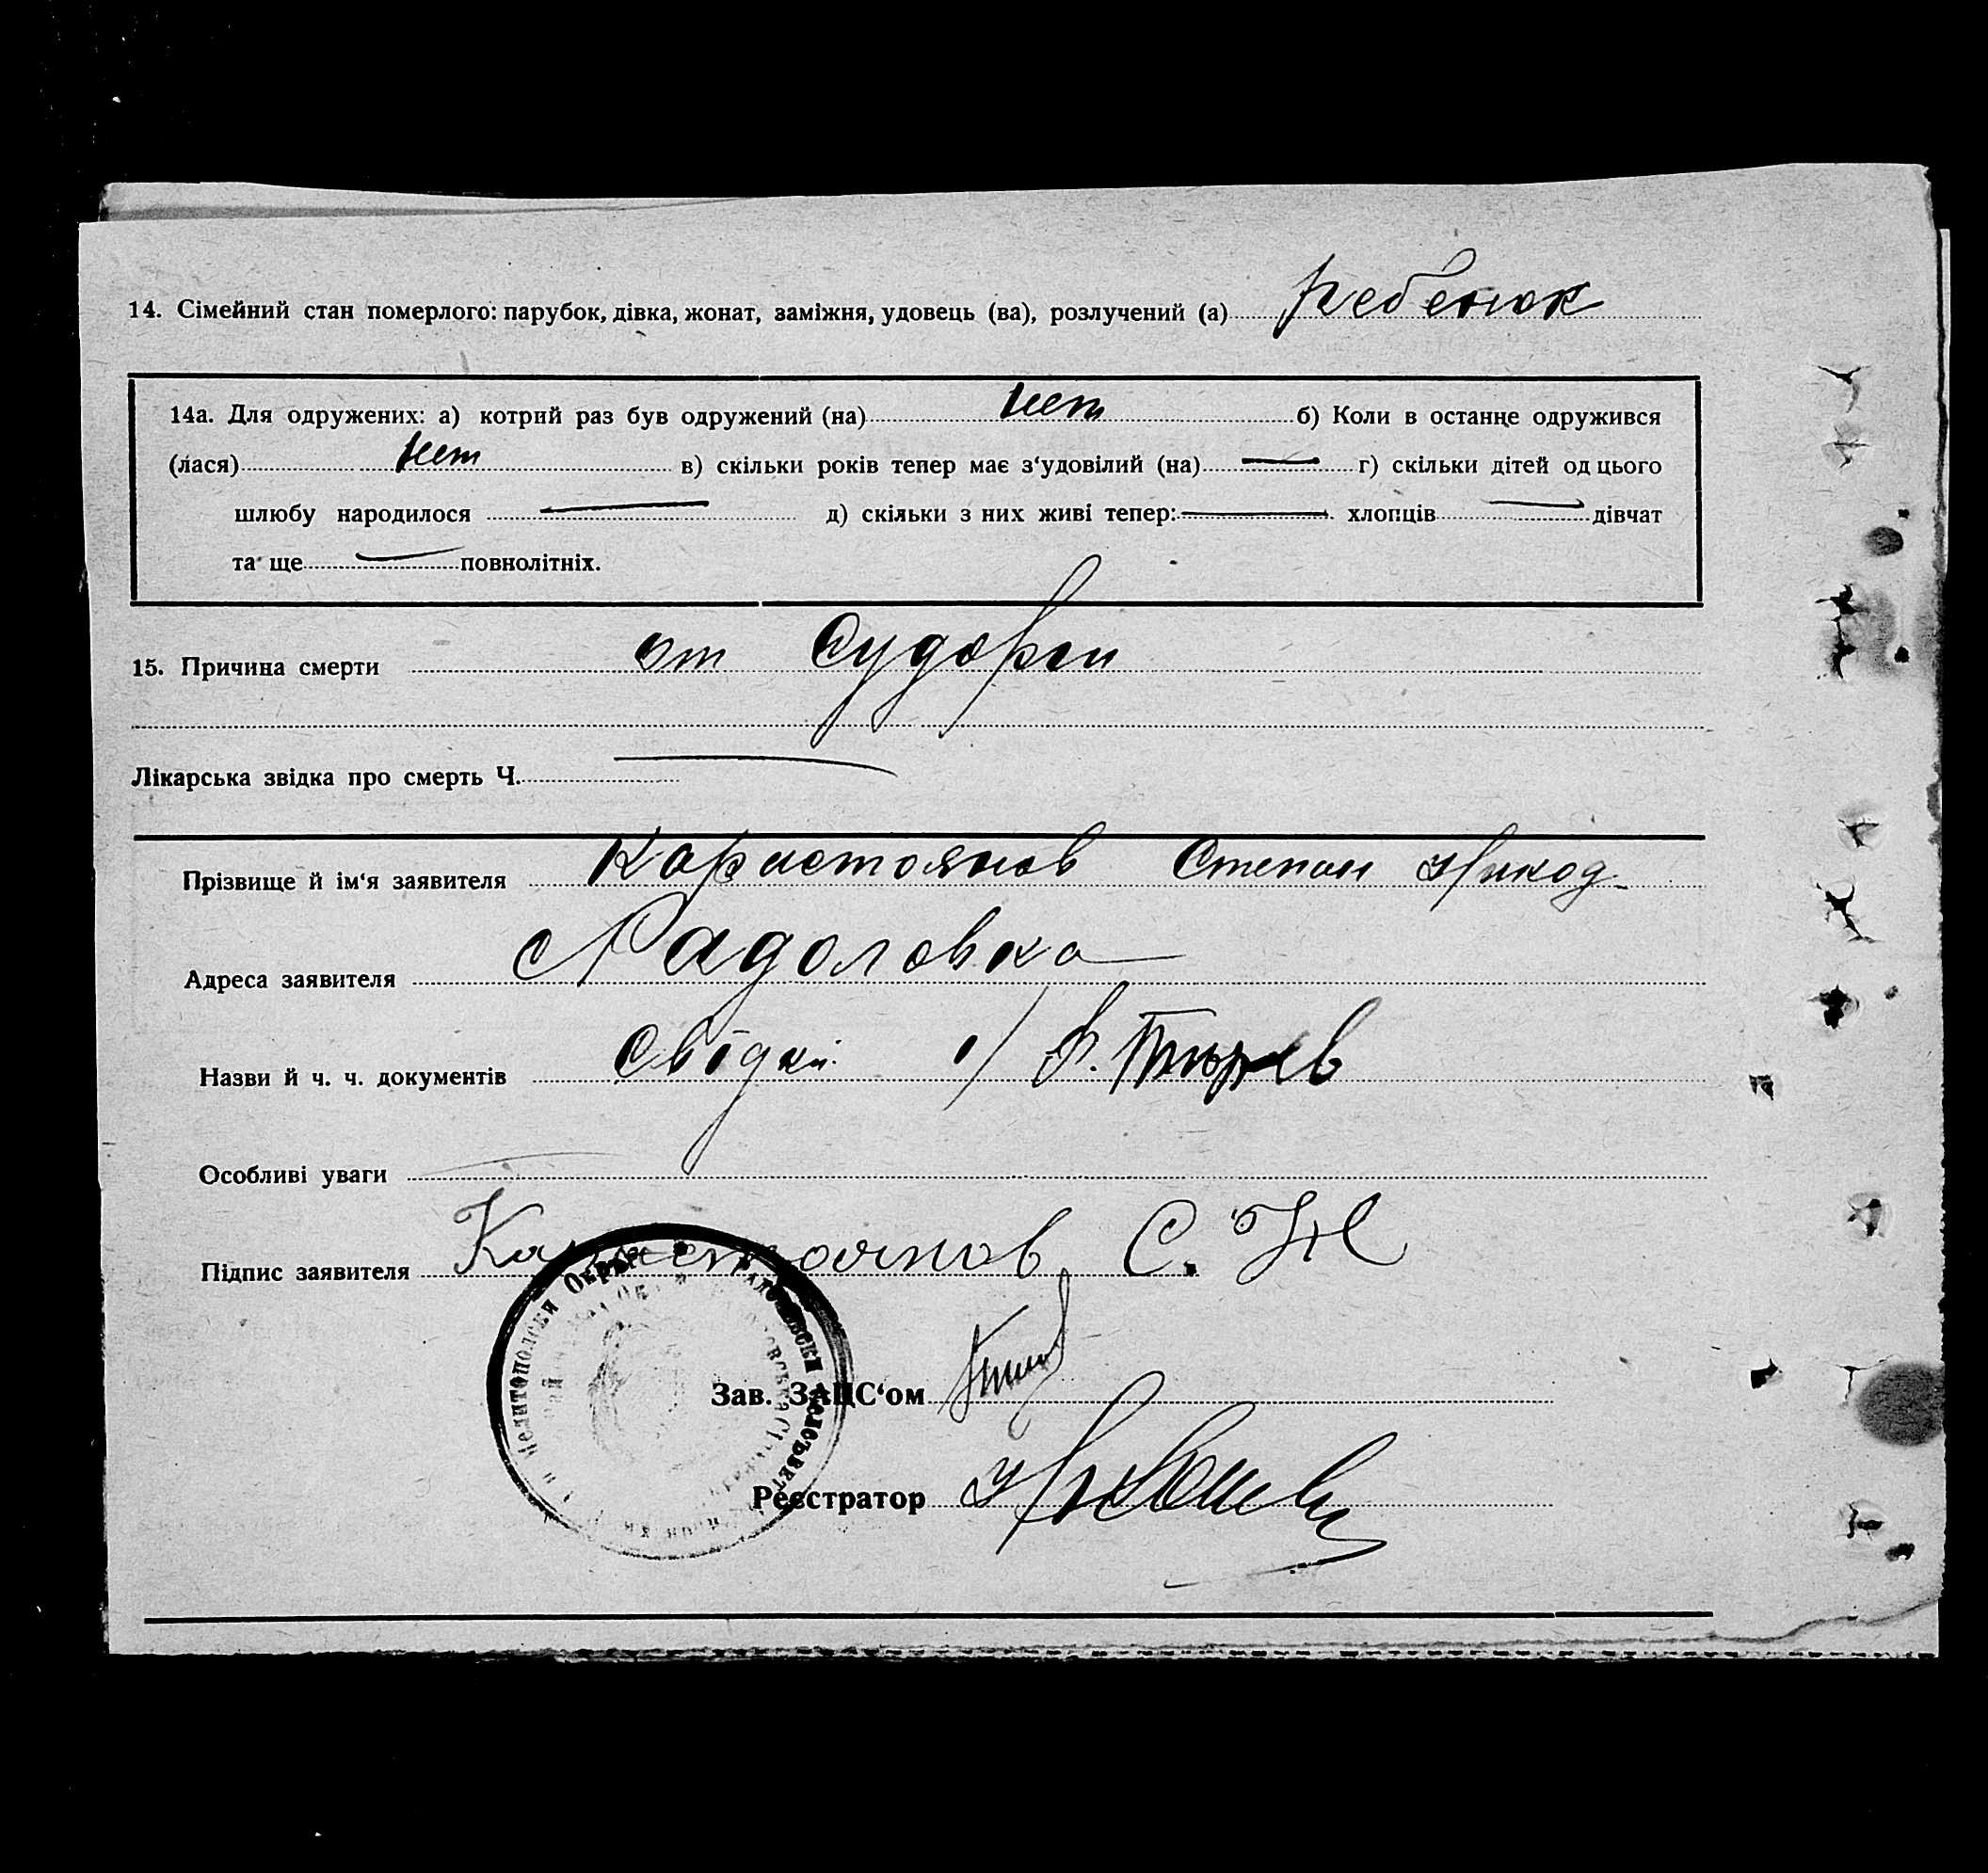 14. Сімейний стан померлого: парубок, дівка, жонат, заміжня, удовець (ва), розлучений (а) ребенок
14а. Для одружених: а) котрий раз був одружений (на) нет б) Коли в останнє одружився
(лася) нет в) скільки років тепер має з‘удовілий (на) — г) скільки дітей од цього
шлюбу народилося — д) скільки з них живі тепер: — хлопців — дівчат
та ще — повнолітніх.
15. Причина смерти от судорги
Лікарська звідка про смерть Ч. —
Прізвище й ім‘я заявителя Каристоянов Степан Никод
Адреса заявителя с Радоловка
Назви й ч. ч. документів Свідки
Особливі уваги
Підпис заявителя Каристоянов С. Н
Мелитопольски Округ
Зав. ЗАЦС‘ом
Реєстратор